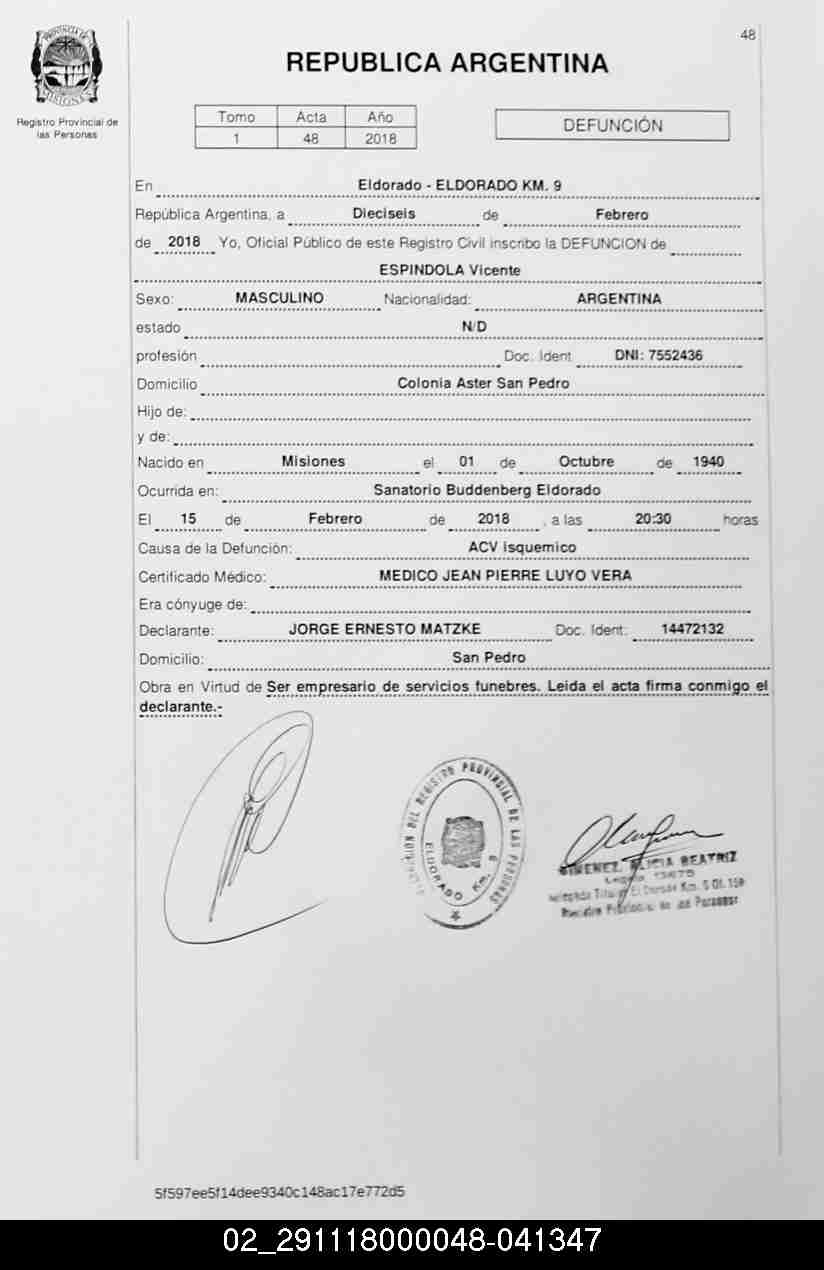 48
PROVINCIA DE
MISIONES
Registro Provincial de
las Personas
REPUBLICA ARGENTINA
Tomo Acta Año
1 48 2018
DEFUNCIÓN
En Eldorado - ELDORADO KM. 9
República Argentina, a Dieciseis de Febrero
de 2018 Yo, Oficial Público de este Registro Civil inscribo la DEFUNCION de
ESPINDOLA Vicente
Sexo: MASCULINO Nacionalidad: ARGENTINA
estado N/D
profesión Doc. Ident DNI: 7552436
Domicilio Colonia Aster San Pedro
Hijo de:
y de:
Nacido en Misiones el 01 de Octubre de 1940
Ocurrida en: Sanatorio Buddenberg Eldorado
El 15 de Febrero de 2018 , a las 20:30 horas
Causa de la Defunción: ACV isquemico
Certificado Médico: MEDICO JEAN PIERRE LUYO VERA
Era cónyuge de:
Declarante: JORGE ERNESTO MATZKE Doc. Ident: 14472132
Domicilio: San Pedro
Obra en Virtud de Ser empresario de servicios funebres. Leida el acta firma conmigo el
declarante.-
DEL REGISTRO PROVINCIAL DE LAS PERSONAS
ELDORADO Km. 9
GIMENEZ, ALICIA BEATRIZ
Titular Eldorado Km. 9 Of. 159
Registro Provincial de las Personas
5f597ee5f14dee9340c148ac17e772d5
02_291118000048-041347